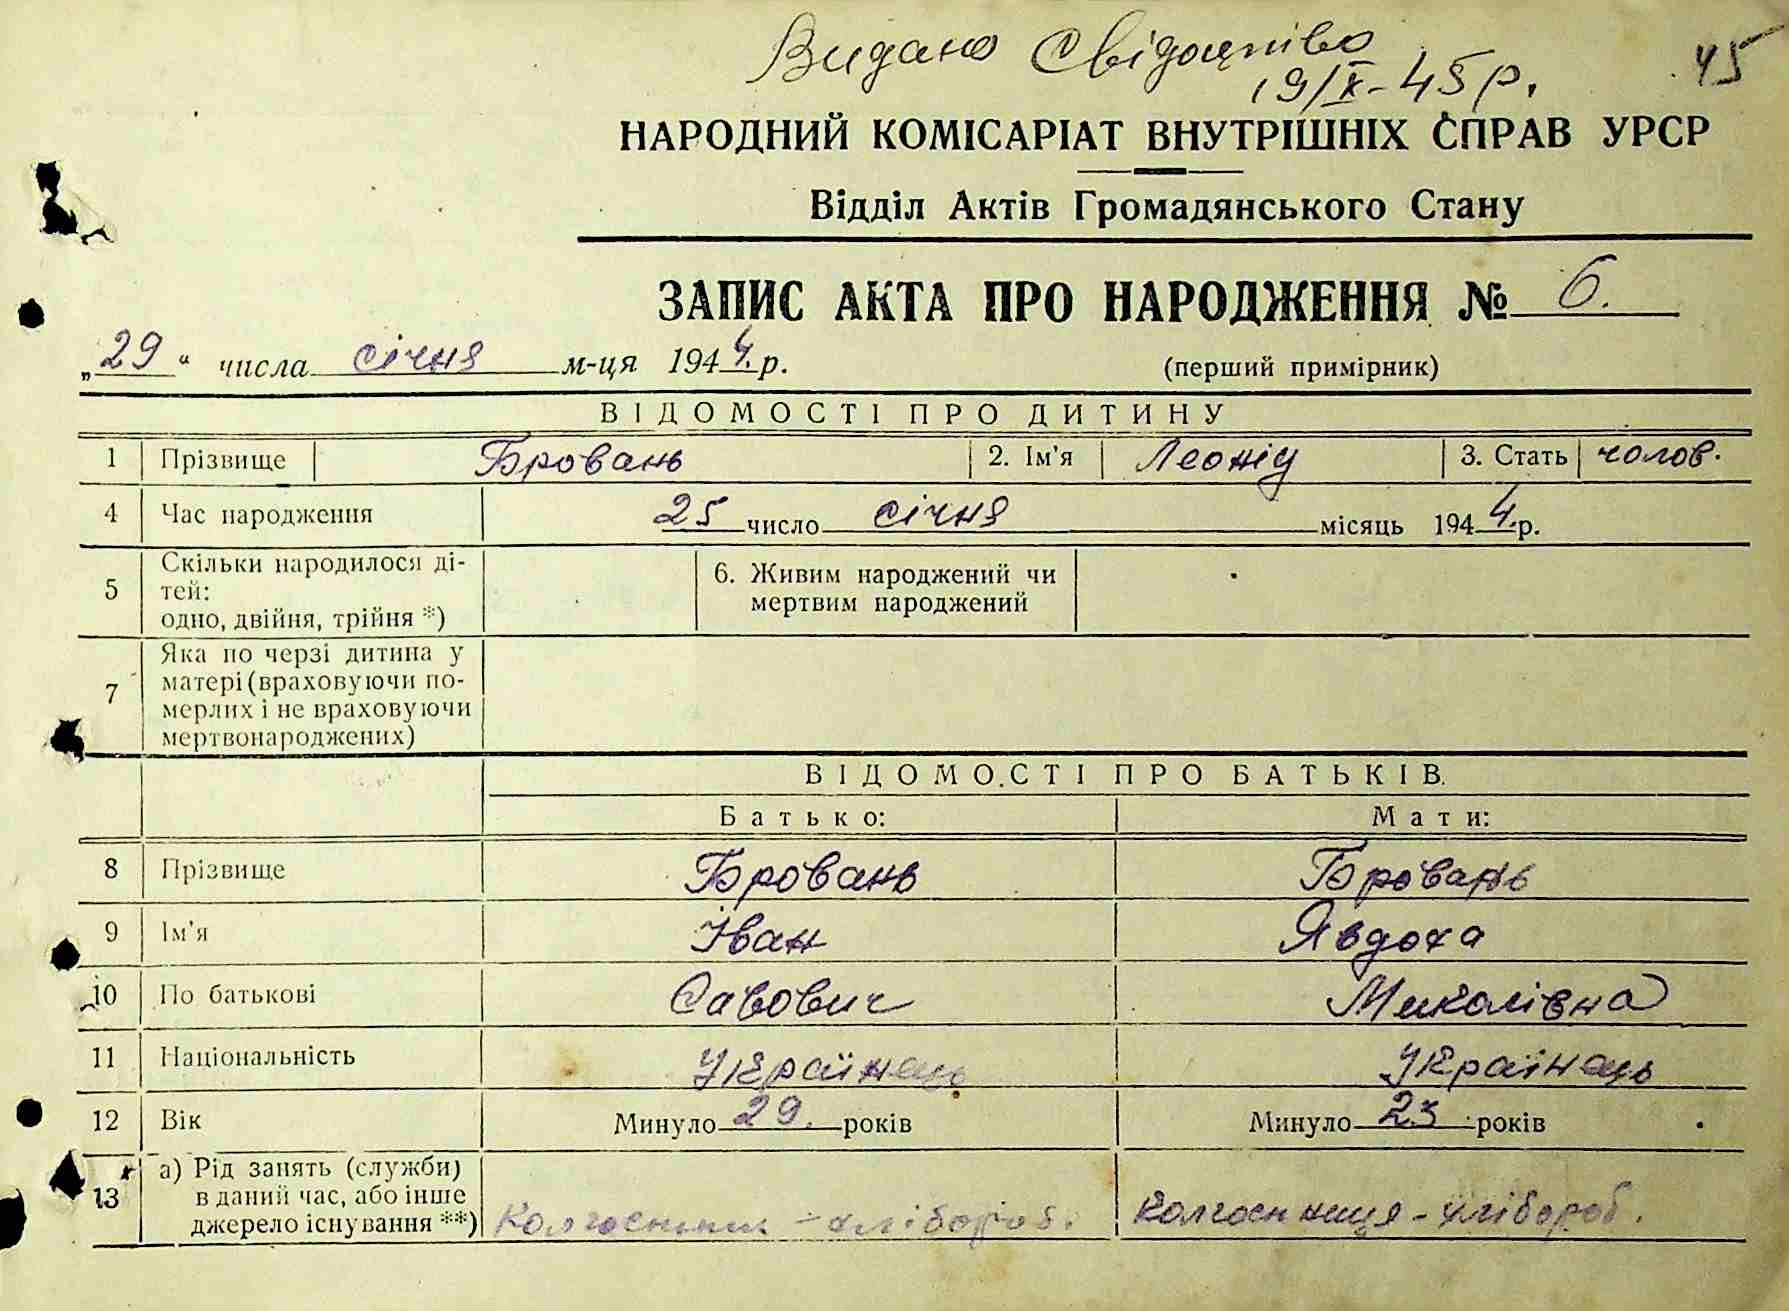 Видано Свідоцтво
19/X-45 р.
45
НАРОДНИЙ КОМІСАРІАТ ВНУТРІШНІХ СПРАВ УРСР
Відділ Актів Громадянського Стану
ЗАПИС АКТА ПРО НАРОДЖЕННЯ № 6.
„29“ числа січня м-ця 1944 р.
(перший примірник)
ВІДОМОСТІ ПРО ДИТИНУ
1 Прізвище Бровань 2. Ім'я Леонід 3. Стать чолов.
4 Час народження 25 число січня місяць 1944 р.
5 Скільки народилося ді-
тей:
одно, двійня, трійня *)
6. Живим народжений чи
мертвим народжений
7 Яка по черзі дитина у
матері (враховуючи по-
мерлих і не враховуючи
мертвонароджених)
ВІДОМОСТІ ПРО БАТЬКІВ
Батько: Мати:
8 Прізвище Бровань Бровань
9 Ім'я Іван Явдоха
10 По батькові Савович Миколівна
11 Національність Українець Українець
12 Вік Минуло 29. років Минуло 23 років
13 а) Рід занять (службу)
в даний час, або інше
джерело існування **) Колгоспник - хлібороб. Колгоспниця - хлібороб.